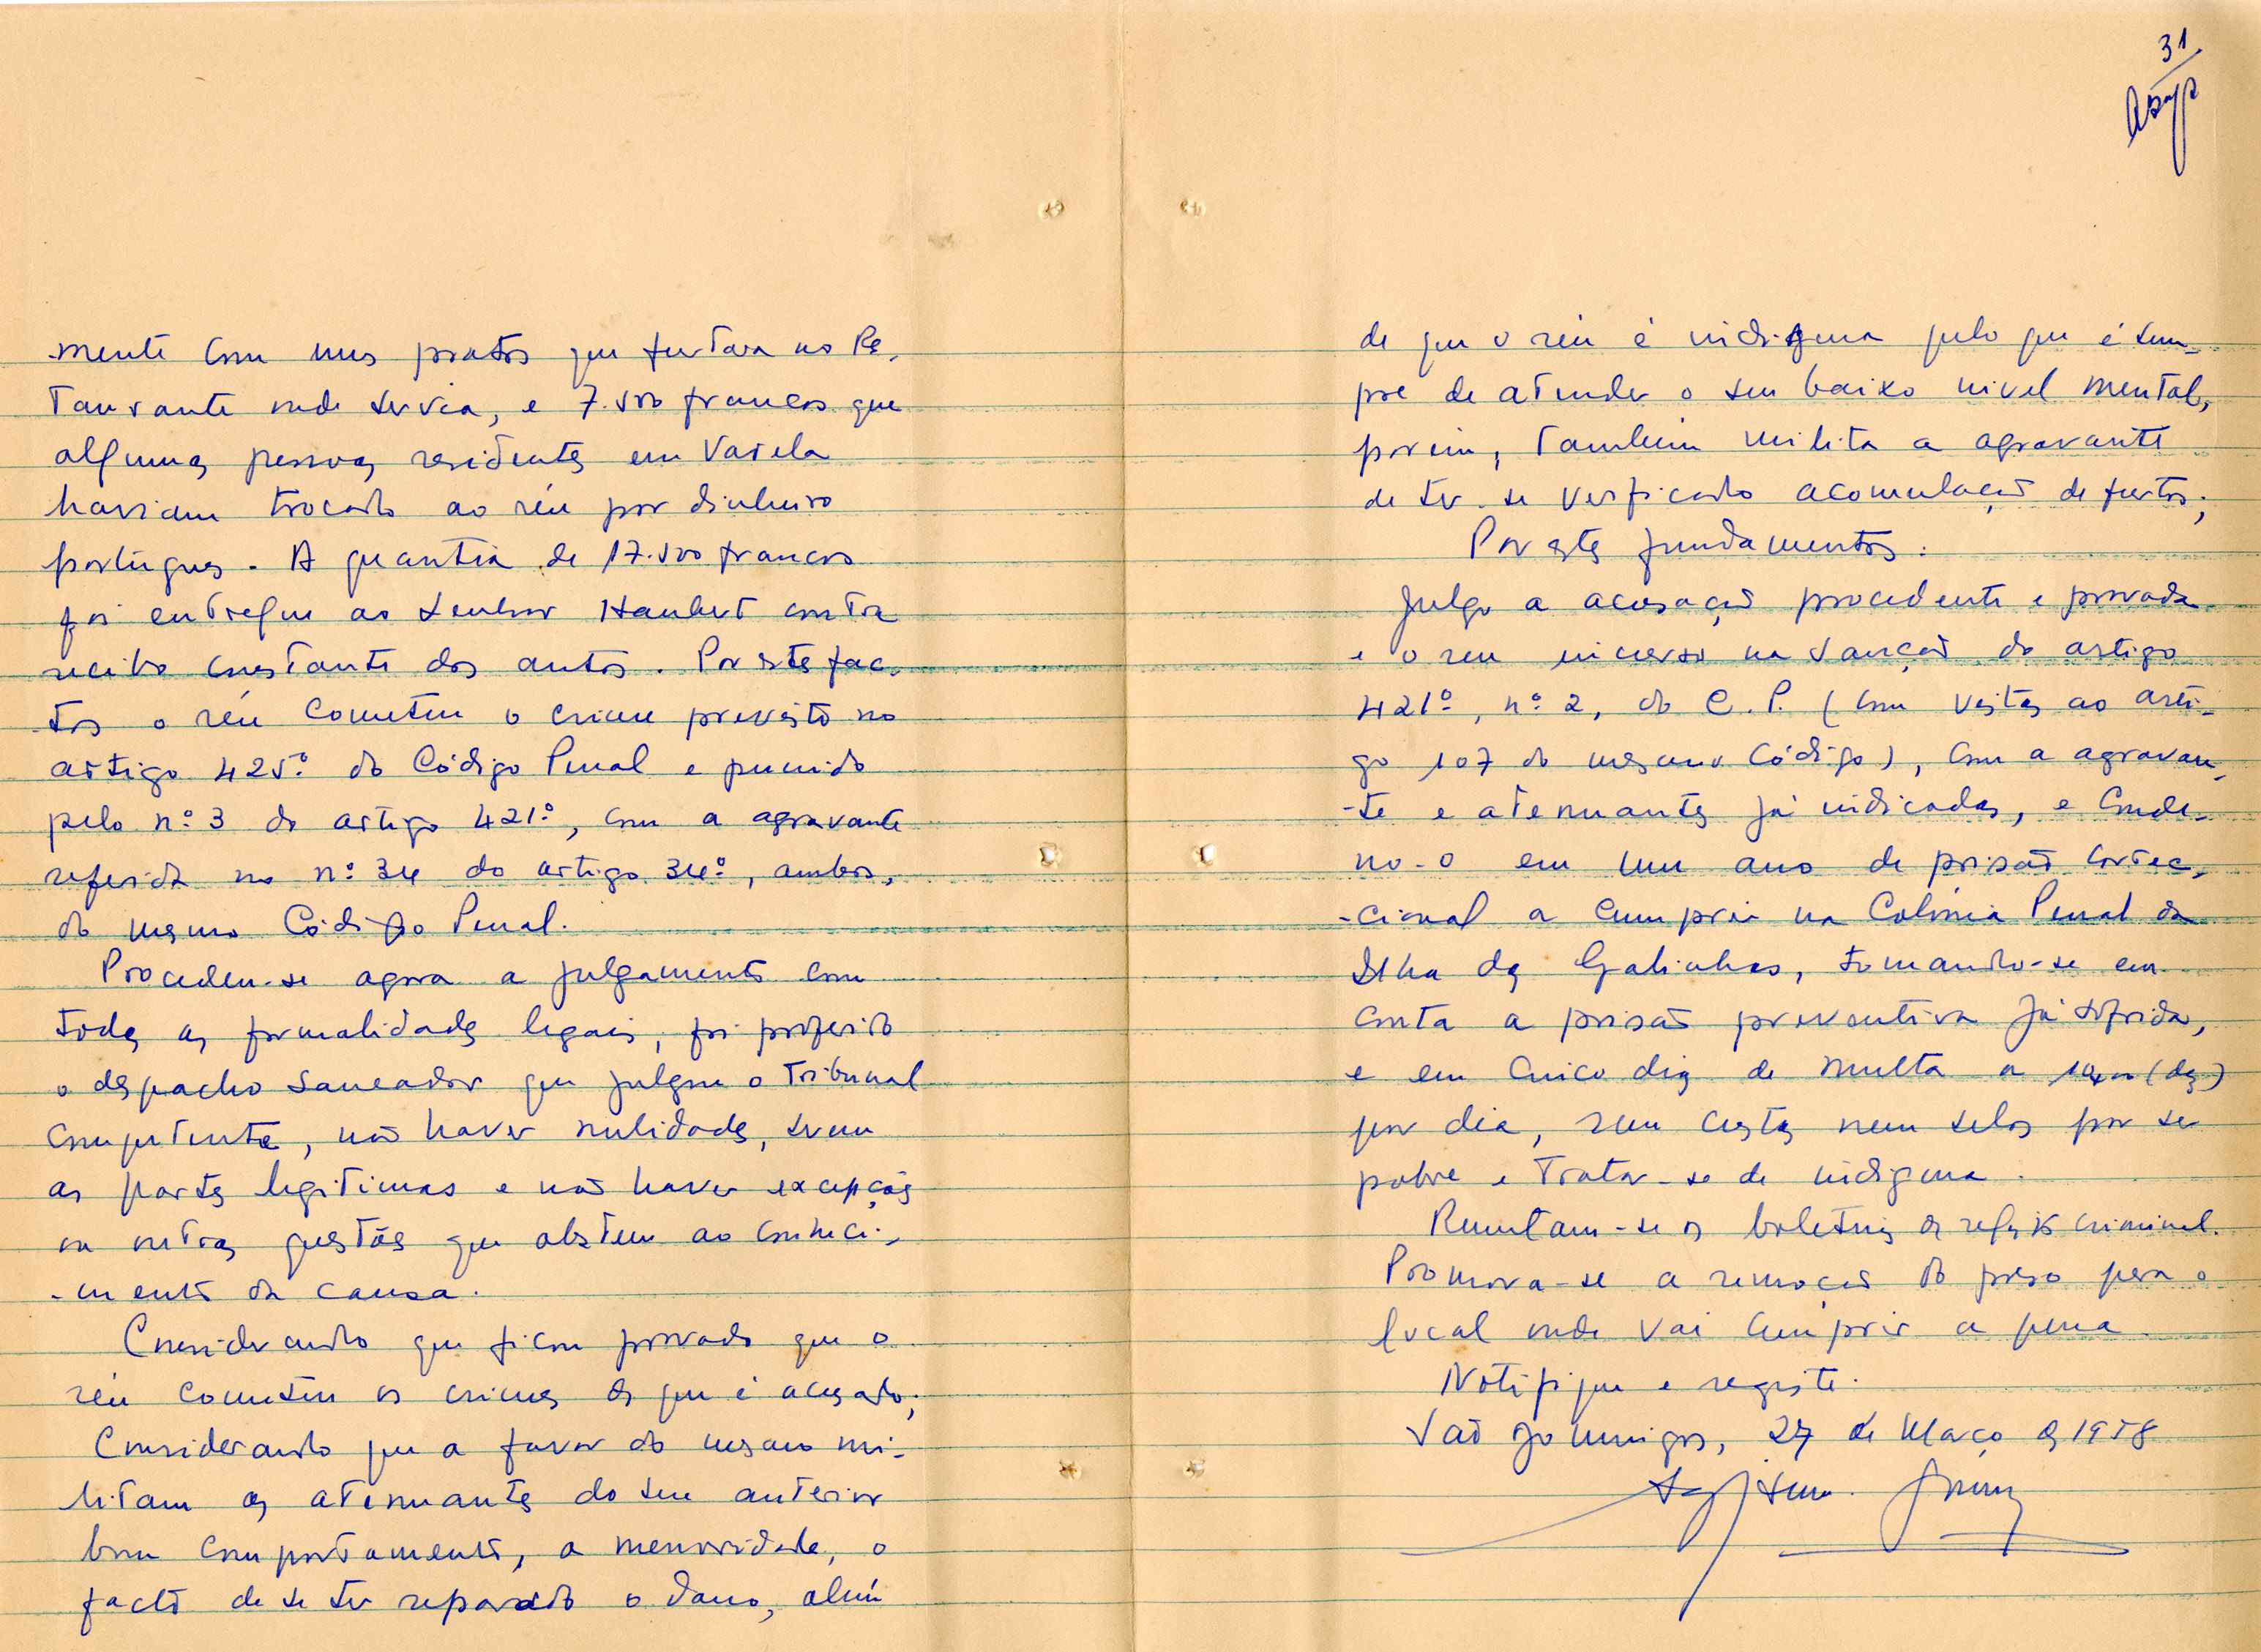 -mente com uns pratos que furtara no Res-
taurante onde servia, e 7.500 francos que
algumas pessoas residentes em Varela
haviam trocado ao réu por dinheiro
português. A quantia de 17.500 francos
foi entregue ao senhor Haubert contra
recibo constante dos autos. Por estes fac-
tos o réu cometeu o crime previsto no
artigo 425º do Código Penal e punido
pelo nº 3 do artigo 421º, com a agravante
referida no nº 34 do artigo 34º, ambos,
do mesmo Código Penal.
Procedeu-se agora a julgamento com
todas as formalidades legais, foi proferido
o despacho saneador que julgou o Tribunal
competente, não haver nulidades, serem
as partes legitimas e não haver excepções
ou outras questões que obstem ao conheci-
-mento da causa.
Considerando que ficou provado que o
réu cometeu os crimes de que é acusado;
Considerando que a favor do mesmo mi-
litam as atenuantes do seu anterior
bom comportamento, a menoridade, o
facto de se ter reparado o dano, além
31
de que o réu é indigena pelo que é sem-
pre de atender o seu baixo nivel mental,
porém, também milita a agravante
de ter-se verificado acomulação de furtos;
Por estes fundamentos:
Julgo a acusação procedente e provada
e o reu incurso na sanção do artigo
421º, nº 2, do C.P. (com vistas ao arti-
go 107 do mesmo Código), com a agravan-
-te e atenuantes já indicadas, e conde-
no-o em um ano de prisão correc-
-cional a cumprir na Colónia Penal da
Ilha das Galinhas, tomando-se em
conta a prisão preventiva já sofrida,
e em cinco dias de multa a 10$00 (dez)
por dia, sem custas nem selos por ser
pobre e tratar-se de indigena.
Remetam-se os boletins de registo criminal.
Promova-se a remoção do preso para o
local onde vai cumprir a pena
Notifique e registe.
São Domingos, 27 de Março de 1958